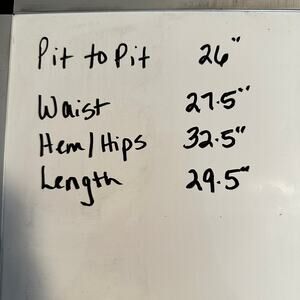 Pit to Pit 26"
Waist 27.5"
Hem/Hips 32.5"
Length 29.5"